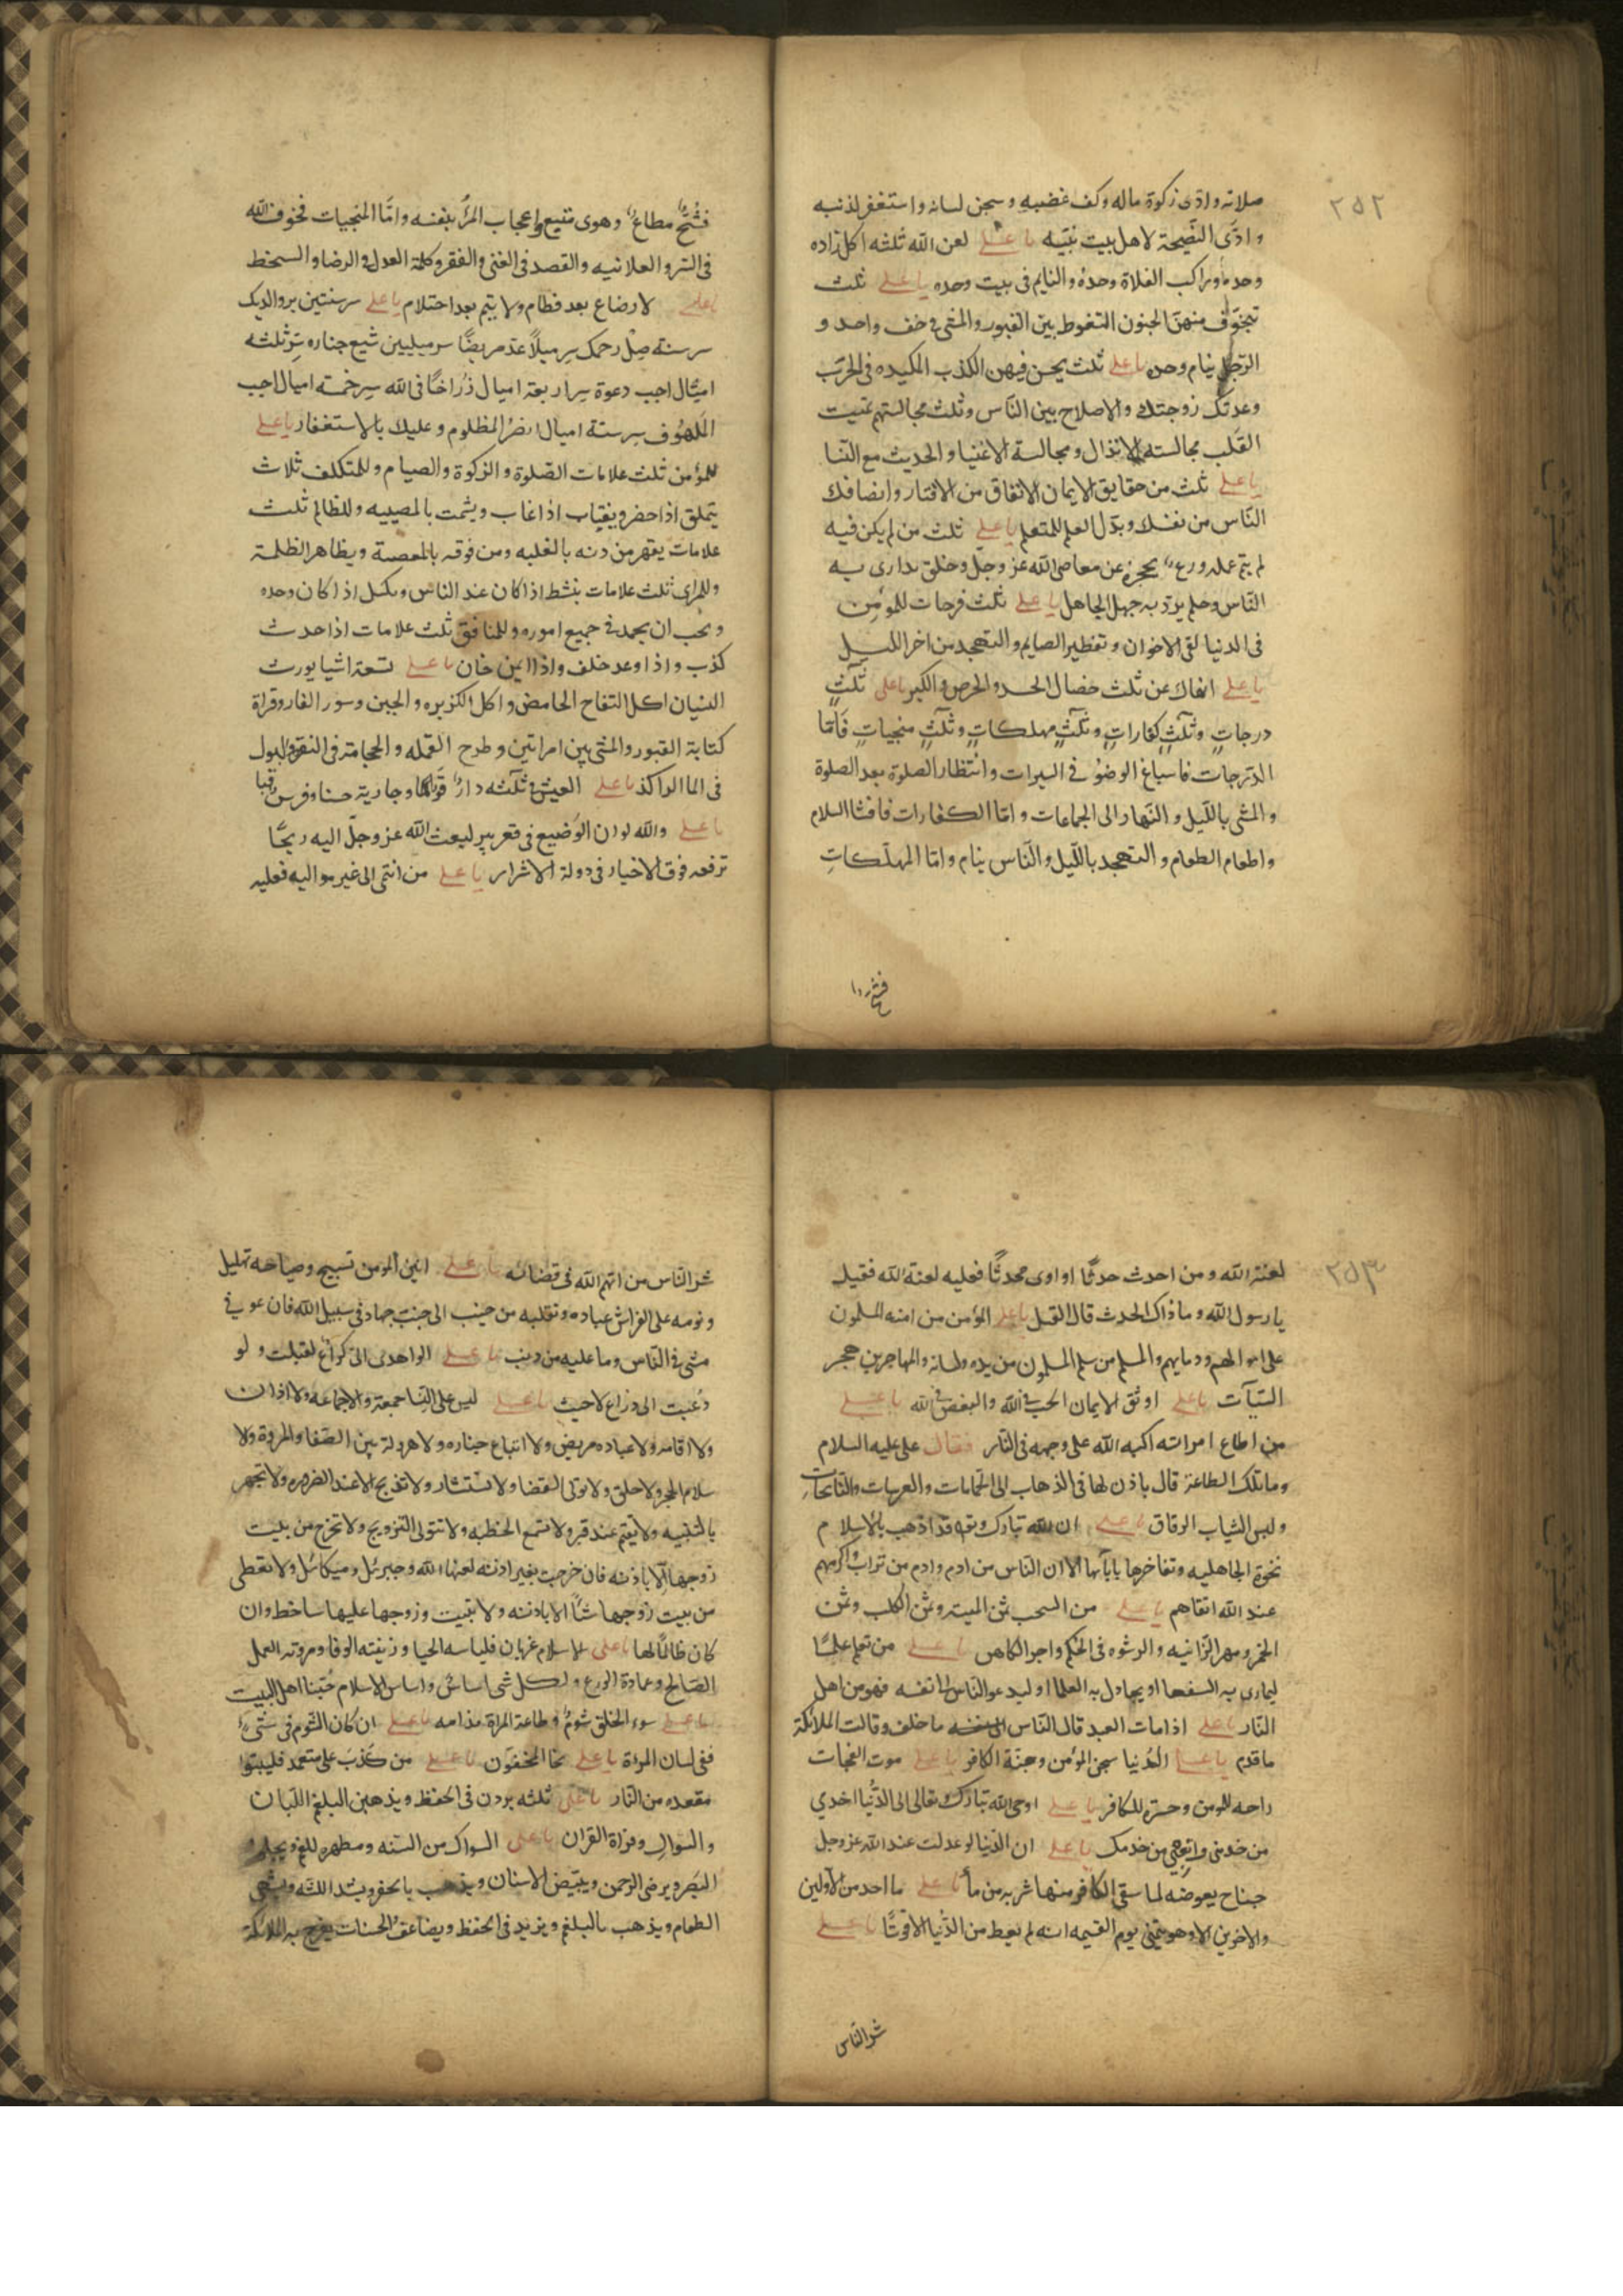 ٢٥٢
صلاته وادى زكوة ماله وكف غضبه وسجن لسانه واستغفر لذنبه
وادّى النصيحة لاهل بيت نبيّه يا على لعن الله ثلثه اكل زاده
وحده وراكب الفلاة وحدهُ والنايم فى بيت وحده يا على ثلث
تيخوّف منهنّ الجنون التغوط بين القبور والمشى فى خف واحد و
الرّجل ينام وحده يا على ثلث يحسن فيهن الكذب المكيده فى الحرب
وعدتك زوجتك والاصلاح بين النّاس وثلث مجالستهم تميت
القلب مجالسته الانذال ومجالسة الاغنيا والحديث مع النسا
يا على ثلث من حقايق الايمان الانفاق من الاقتار وانصافك
النّاس من نفسك وبذل العلم للمتعلم يا على ثلث من لم يكن فيه
لم يتم عمله ورعٌ يحجزه عن معاصى الله عز وجلّ وخلق يدارى به
النّاس وحلم يردّ به جهل الجاهل يا على ثلث فرحات للمؤمن
فى الدنيا لقى الاخوان وتفطير الصايم والتهجد من اخر الليل
يا على انهاك عن ثلث خصال الحسد والحرص والكبر يا على ثلثٌ
درجاتٍ وثلثٌ كفاراتٍ وثلثٌ مهلكاتٍ وثلثٌ منجياتٍ فامّا
الدّرجات فاسباغ الوضوُ فى السبرات وانتظار الصلوة بعد الصلوة
والمشى بالليل والنّهار الى الجماعات وامّا الكفارات فافشا السلام
واطعام الطعام والتهجد بالليل والنّاس ينام وامّا المهلكاتِ
فشحٌ
فشُحٌّ مطاعٌ وهوى متبع واعجاب المرُ بنفسه وامّا المنجيات فخوف الله
فى السّر والعلانيه والقصد فى الغنى والفقر وكلمة العدل فى الرضا والسخط
يا على لا رضاع بعد فطام ولا يتم بعد احتلام يا على سر سنتين بر والديك
سر سنة صِلْ رحمك سِر ميلاً عُد مريضًا سر ميليين شيّع جنازه سِر ثلثه
اميال اجب دعوة سِر اربعة اميال زُر اخًا فى الله سِر خمسة اميال اجب
الملهُوف سر ستة اميال انصُر المظلوم وعليك بالاستغفار يا على
للمؤمن ثلث علامات الصّلوة والزكوة والصيام وللمتكلف ثلاث
يتملق اذا حضر ويغتاب اذا غاب ويشمت بالمصيبه وللظالم ثلث
علامات يقهر من دونه بالغلبه ومن فوقه بالمعصية ويظاهر الظلمة
وللمراى ثلث علامات ينشط اذا كان عند الناس ويكسل اذا كان وحده
ويحب ان يحمد فى جميع اموره وللمنافق ثلث علامات اذا حدث
كذب واذا وعد خلف واذا ايمن خان يا على تسعة اشيا يورث
النسيان اكل التفاح الحامض واكل الكزبره والجبن وسور الفار وقراة
كتابة القبور والمشى بين امراتين وطرح القمله والحجامة فى النقره والبول
فى الما الراكد يا على العيش فى ثلثه دارٌ قوراء وجارية حسنا وفرس قبا
يا على والله لو ان الوضيع فى قعر بير لبعث الله عز وجلّ اليه ريحًا
ترفعه فوق الاخيار فى دولة الاشرار يا على من انتمى الى غير مواليه فعليه
٢٥٣
لعنة الله ومن احدث حدثًا او اوى محدثًا فعليه لعنة الله فقيل
يا رسول الله وما ذاك الحدث قال القتل يا على المؤمن من امنه المسلمون
على اموالهم ودمايهم والمسلم من سلم المسلمون من يده ولسانه والمهاجر من هجر
السّيآت يا على اوثق الايمان الحب فى الله والبغض فى الله يا على
من اطاع امراته اكبه الله على وجهه فى النّار فقال على عليه السلام
وما تلك الطاعة قال ياذن لها فى الذهاب الى الحمّامات والعرسات والنّايحات
ولبس الثياب الرقاق يا على ان الله تبارك وتع قد اذهب بالاسلام
نخوة الجاهليه وتفاخرها بابآئها الا ان النّاس من ادم وادم من تراب واكرمهم
عند الله اتقاهم يا على من السحت ثمن الميته وثمن الكلب وثمن
الخمر ومهر الزّانيه والرشوه فى الحُكم واجر الكاهن يا على من تعلم علمًا
ليمارى به السفها او يجادل به العلما او ليدعو النّاس الى نفسه فهو من اهل
النّار يا على اذا مات العبد قال النّاس ما خلف وقالت الملائكة
ما قدم يا على الدُنيا سجن المؤمن وجنّة الكافر يا على موت الفجات
راحه للمومن وحسرة للكافر يا على اوحى الله تبارك وتعالى الى الدُّنيا اخدمي
من خدمنى واتعبى من خدمك يا على ان الدّنيا لو عدلت عند الله عز وجل
جناح بعوضه لما سقى الكافر منها شربه من ما يا على ما احد من الاولين
والاخرين الا وهو يتمنى يوم القيمه انه لم يعط من الدُّنيا الا قوتًا يا على
شر النّاس
شر النّاس من اتهم الله فى قضائه يا على انين المومن تسبيح وصياحه تهليل
ونومه على الفراش عباده وتقلبه من جنب الى جنب جهاد فى سبيل الله فان عوفى
مشى فى النّاس وما عليه من ذنب يا على لو اهدى الىّ كراعٌ لقبلت ولو
دُعيت الى ذراع لاجبت يا على ليس على النّسا جمعة ولا جماعه ولا اذان
ولا اقامه ولا عياده مريض ولا اتباع جنازه ولا هروله بين الصّفا والمروة ولا
سلام الحجر ولا حلق ولا تولى القضا ولا تستشار ولا تذبح الا عند الضروره ولا تجهر
بالتلبيه ولا تقيم عند قبر ولا تسمع الخطبه ولا تتولى التزويج ولا تخرج من بيت
زوجها الّا باذنه فان خرجت بغير اذنه لعنها الله وجبرئل وميكائل ولا تعطى
من بيت زوجها شئًا الا باذنه ولا تبيت وزوجها عليها ساخط وان
كان ظالمًا لها يا على الاسلام عريان فلباسه الحيا وزينته الوفا ومروته العمل
الصّالح وعماده الورع ولكل شى اساسٌ واساس الاسلام حُبّنا اهل البيت
يا على سوء الخلق شومٌ وطاعة المراة ندامه يا على ان كان الشّوم فى شىءٍ
ففى لسان المراة يا على نجا المخففون يا على من كذبَ علىّ متعمد فليتبوا
مقعده من النّار يا على ثلثه يزدن فى الحفظ ويذهبن البلغم اللّبان
والسّواك وقراة القران يا على السواك من السّنه ومطهره للفم ويجلو
البَصر ويرضى الرحمن ويبيّض الاسنان ويذهب بالحفر ويشد اللثّه ويشهى
الطعام ويذهب بالبلغم ويزيد فى الحفظ ويضاعف الحسنات ويفرح به الملائكة